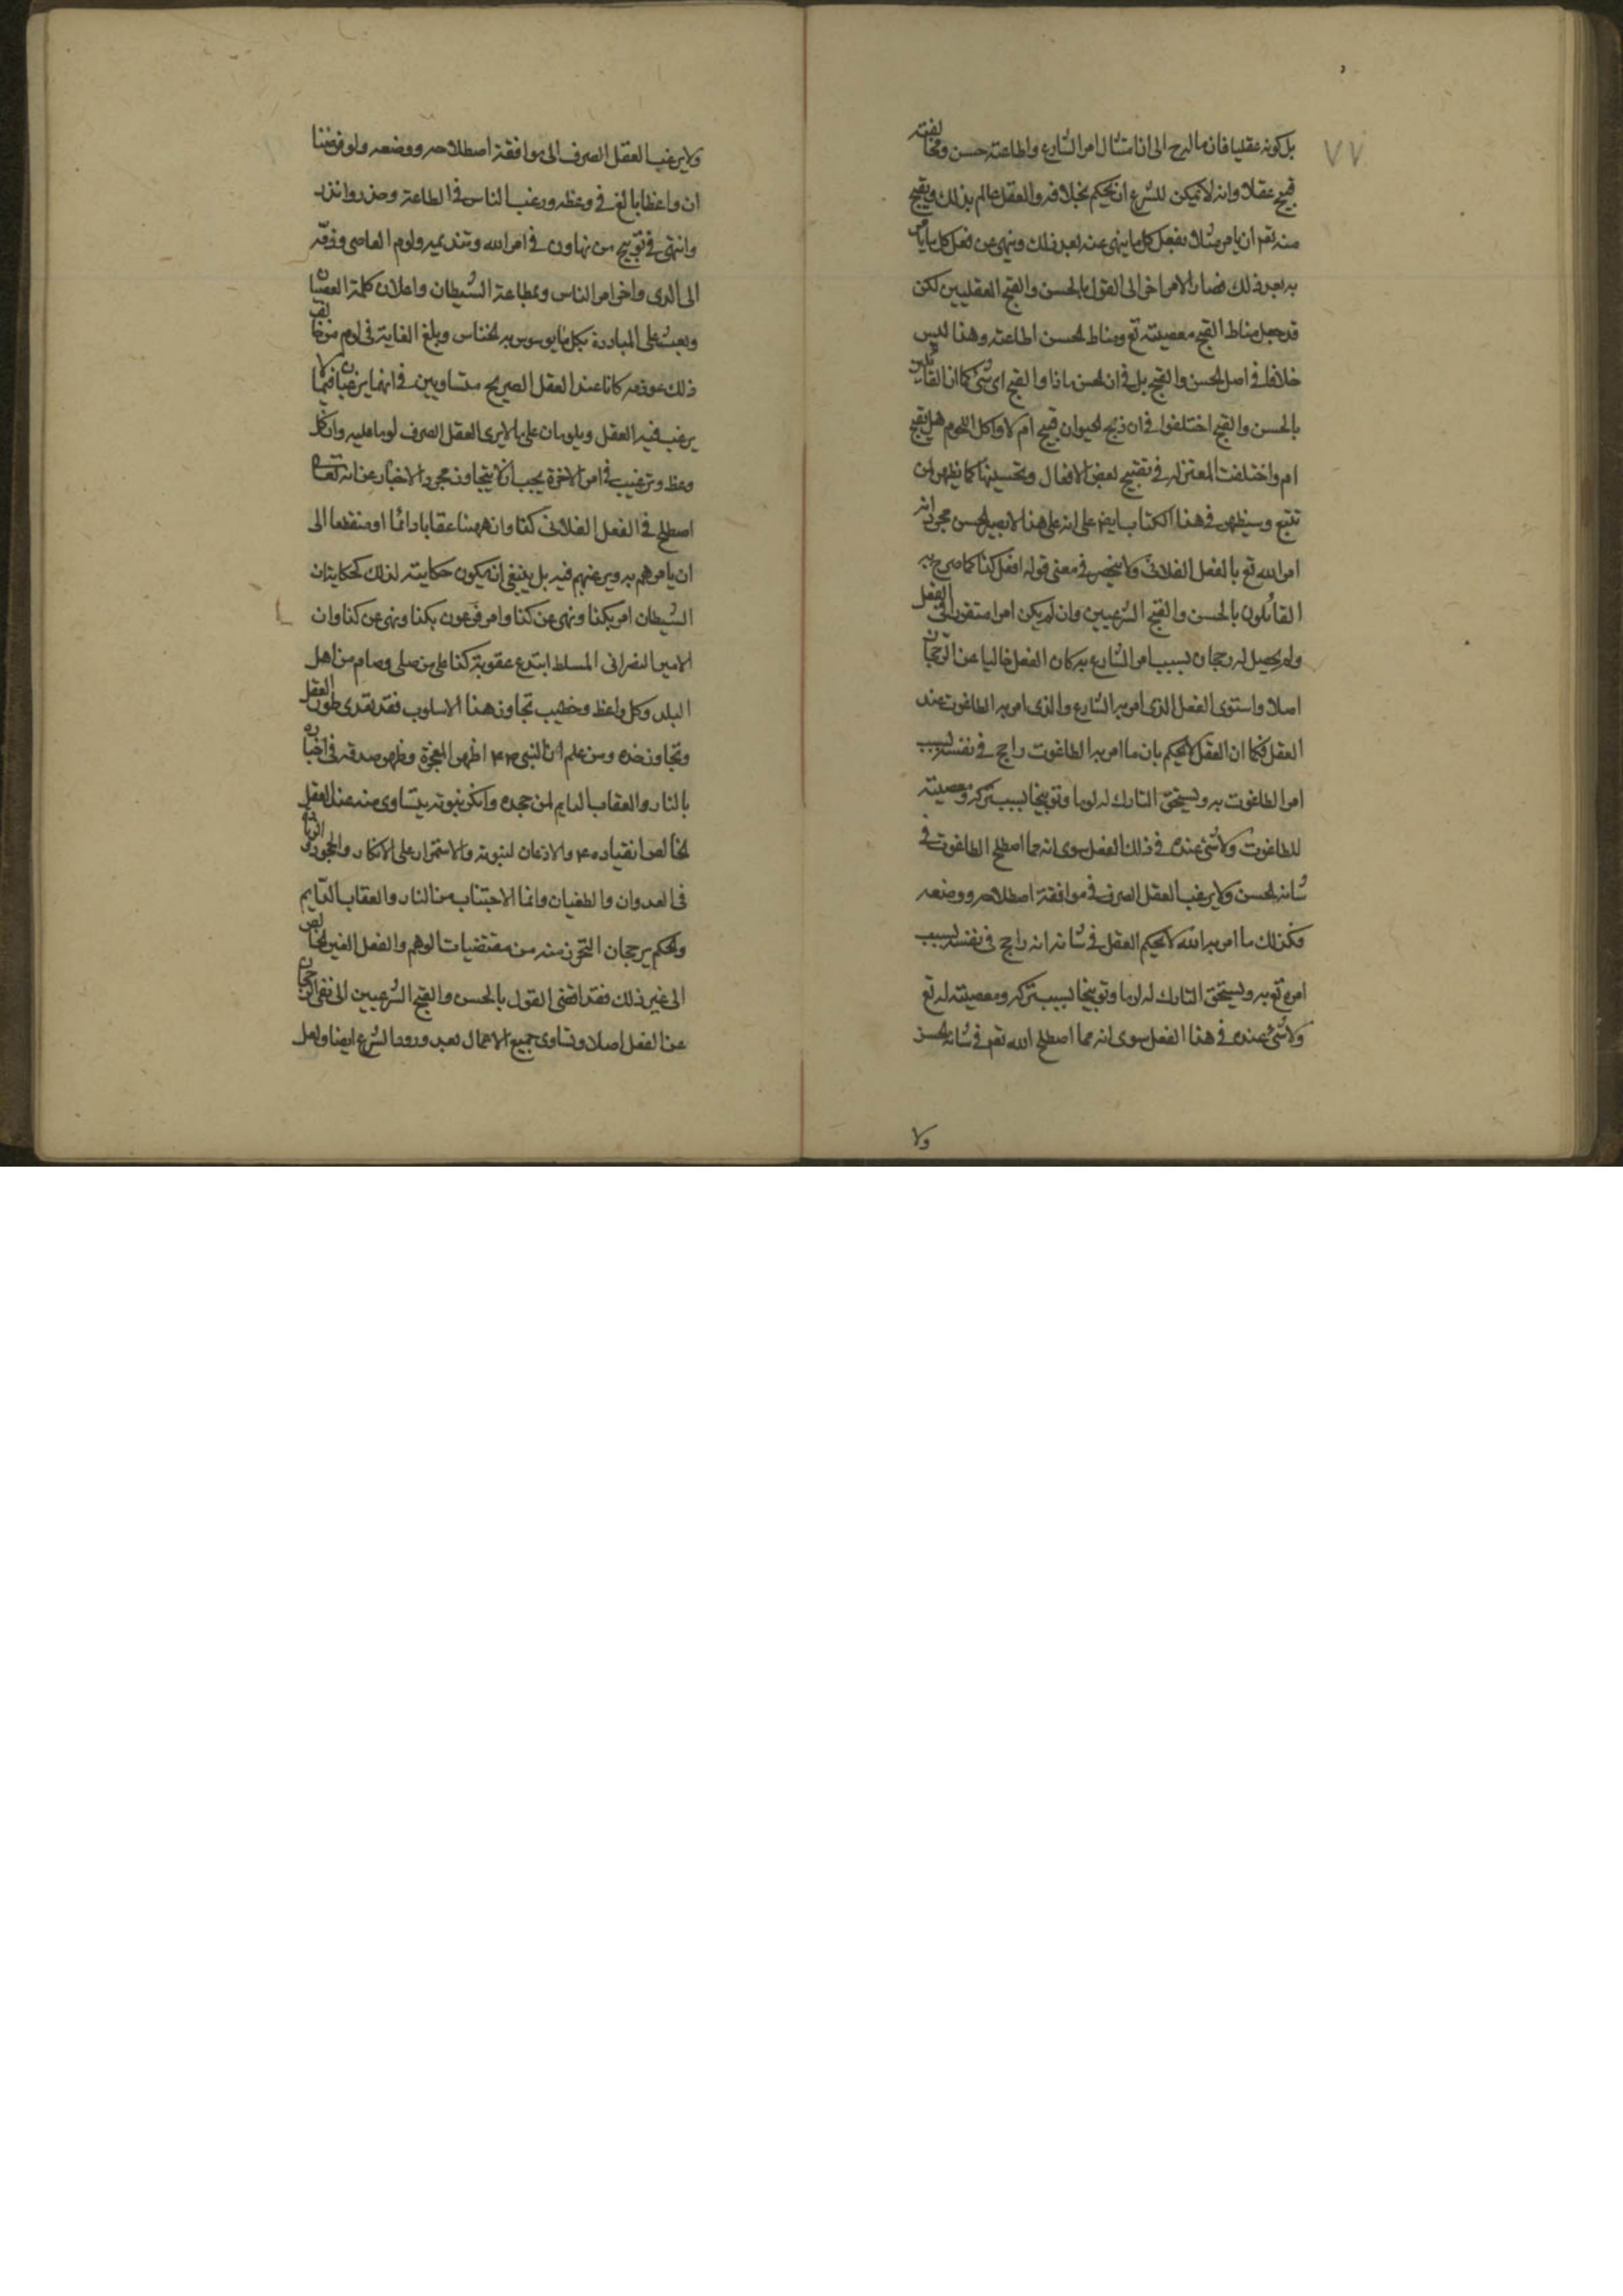 ٧٧
بل كونه عقليا فان مآله رجع الى ان امتثال امر الشارع واطاعته حسن ومخالفته
قبيح عقلا وانه لا يمكن للشرع ان يحكم بخلافه والعقل عالم بذلك ويقبح
منه تعم ان يامر مثلا بفعل كل ما ينهى عنه بعد ذلك وينهى عن فعل كل ما يامر
به بعد ذلك فصار الامر اخرا الى القول بالحسن والقبح العقليين لكن
قد جعل مناط القبح معصيته تع ومناط الحسن اطاعته وهذا ليس
خلافا فى اصل الحسن والقبح بل فى ان الحسن ماذا والقبح اى شئ كما ان القائلين
بالحسن والقبح اختلفوا فى ان ذبح الحيوان قبيح ام لا واكل اللحوم هل يقبح
ام واختلفت المعتزله فى تقبيح بعض الافعال وتحسينها كما يظهر لمن
تتبع وسيظهر فى هذا الكتاب ايضا على انه على هذا لا يصير الحسن مجرد انه
امر الله تع بالفعل الفلانى ولا ينحصر فى معنى قوله افعل كذا كما صرح به
القائلون بالحسن والقبح الشرعيين وان لم يكن امرا متقررا فى الفعل
ولم يحصل له رجحان بسبب امر الشارع به كان الفعل خاليا عن الرجحان
اصلا واستوى الفعل الذى امر به الشارع والذى امر به الطاغوت عند
العقل فكما ان العقل لا يحكم بان ما امر به الطاغوت راجح فى نفسه بسبب
امر الطاغوت به ويستحق التارك له لوما وتوبيخا بسبب تركه ومعصيته
للطاغوت ولا شئ عنده فى ذلك الفعل سوى انه مما اصطلح الطاغوت فى
شانه الحسن ولا يرغب العقل الصرف فى موافقة اصطلاحه ووضعه
فكذلك ما امر به الله لا يحكم العقل فى شانه انه راجح فى نفسه بسبب
امره تع به ويستحق التارك له لوما وتوبيخا بسبب تركه ومعصيته له تع
ولا شئ عنده فى هذا الفعل سوى انه مما اصطلح الله تعم فى شانه الحسن
ولا
ولا يرغب العقل الصرف الى موافقة اصطلاحه ووضعه ولو فرضنا
ان واعظا بالغ فى وعظه ورغب الناس فى الطاعة وحذر وانذر
وانتهى فى توبيخ من تهاون فى امر الله وتنديمه ولوم العاصى وذمّه
الى المدى واخر امر الناس بمطاعة الشيطان واعلان كلمة العصيان
وبعث على المبادرة بكل ما يوسوس به الخناس وبلغ الغاية فى لوم من خالف
ذلك عوذمه كانا عند العقل الصريح متساويين فى انهما يرغبان فيما لا
يرغب فيه العقل ويلومان على ما لا يرى العقل الصرف لوما عليه وان كل
وعظ وترغيب فى امر الاخرة يجب ان لا يتجاوز مجرد الاخبار عن انه تعالى
اصطلح فى الفعل الفلانى كذا وان ههنا عقابا دائما او منقطعا الى
ان يامرهم به ويرغبهم فيه بل ينبغى ان يكون حكايته لذلك كحكاية ان
الشيطان امر بكذا ونهى عن كذا وامر فرعون بكذا ونهى عن كذا وان
الامير النصرانى المسلط ابتدع عقوبة كذا على من صلى وصام من اهل
البلد وكل واعظ وخطيب تجاوز هذا الاسلوب فقد تعدى طور العقل
وتجاوز حده ومن علم ان النبى اظهر المعجزة وظهر صدقه فى اخباره
بالنار والعقاب الدايم لمن جحده وانكر نبوته يتساوى عنه عند العقل
الخالص انقياده والاذعان لنبوته والاستمرار على الانكار والجحود والزيادة
فى العدوان والطغيان وانما الاجتناب من النار والعقاب الدّايم
والحكم برجحان التحرز منه من مقتضيات الوهم والفعل الغير الخالص
الى غير ذلك فقد افضى القول بالحسن والقبح الشرعيين الى نفى الرجحان
عن الفعل اصلا وتساوى جميع الاعمال بعد ورود الشرع ايضا ولعل